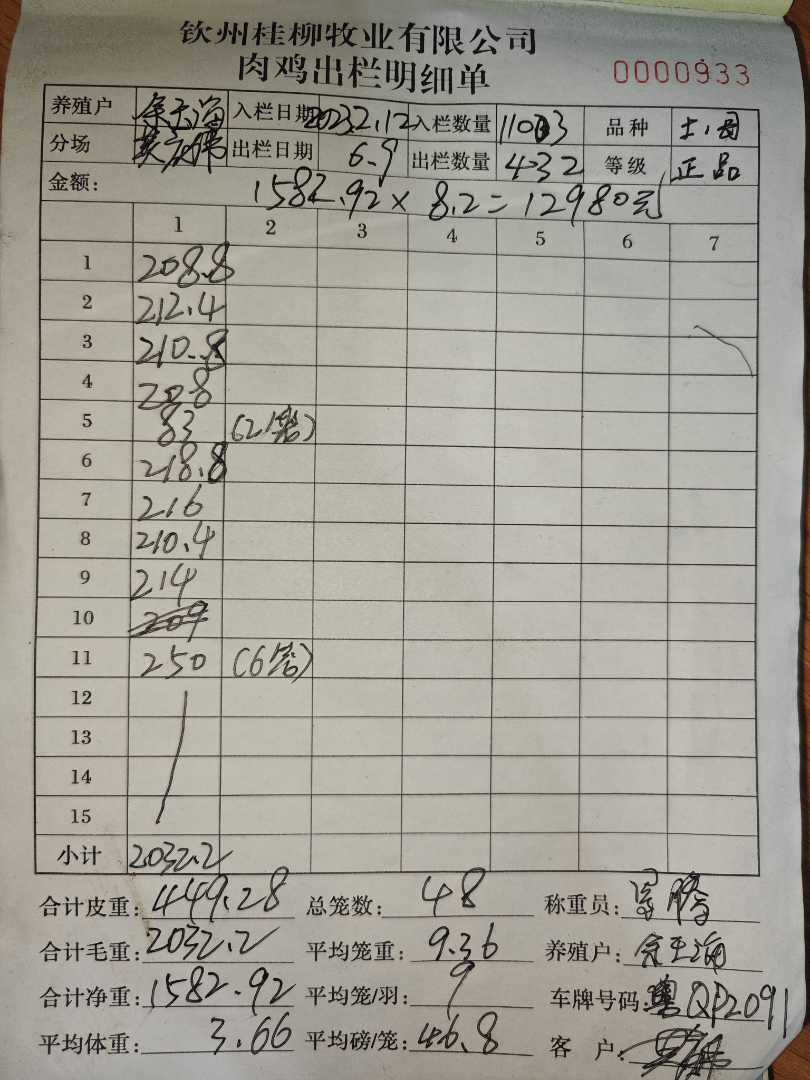 钦州桂柳牧业有限公司
肉鸡出栏明细单
0000933
养殖户 余玉海 入栏日期 2023.2.12 入栏数量 11003 品种 土2母
分场 出栏日期 6.9 出栏数量 432 等级 正品
金额: 1582.92 × 8.2 = 12980元
1 2 3 4 5 6 7
1 208.8
2 212.4
3 210.8
4 208
5 83 (2笼)
6 218.8
7 216
8 210.4
9 214
10 209
11 250 (6笼)
12
13
14
15
小计 2032.2
合计皮重: 449.28 总笼数: 48 称重员:
合计毛重: 2032.2 平均笼重: 9.36 养殖户: 余玉海
合计净重: 1582.92 平均笼/羽: 9 车牌号码: 粤QP2091
平均体重: 3.66 平均磅/笼: 46.8 客 户: